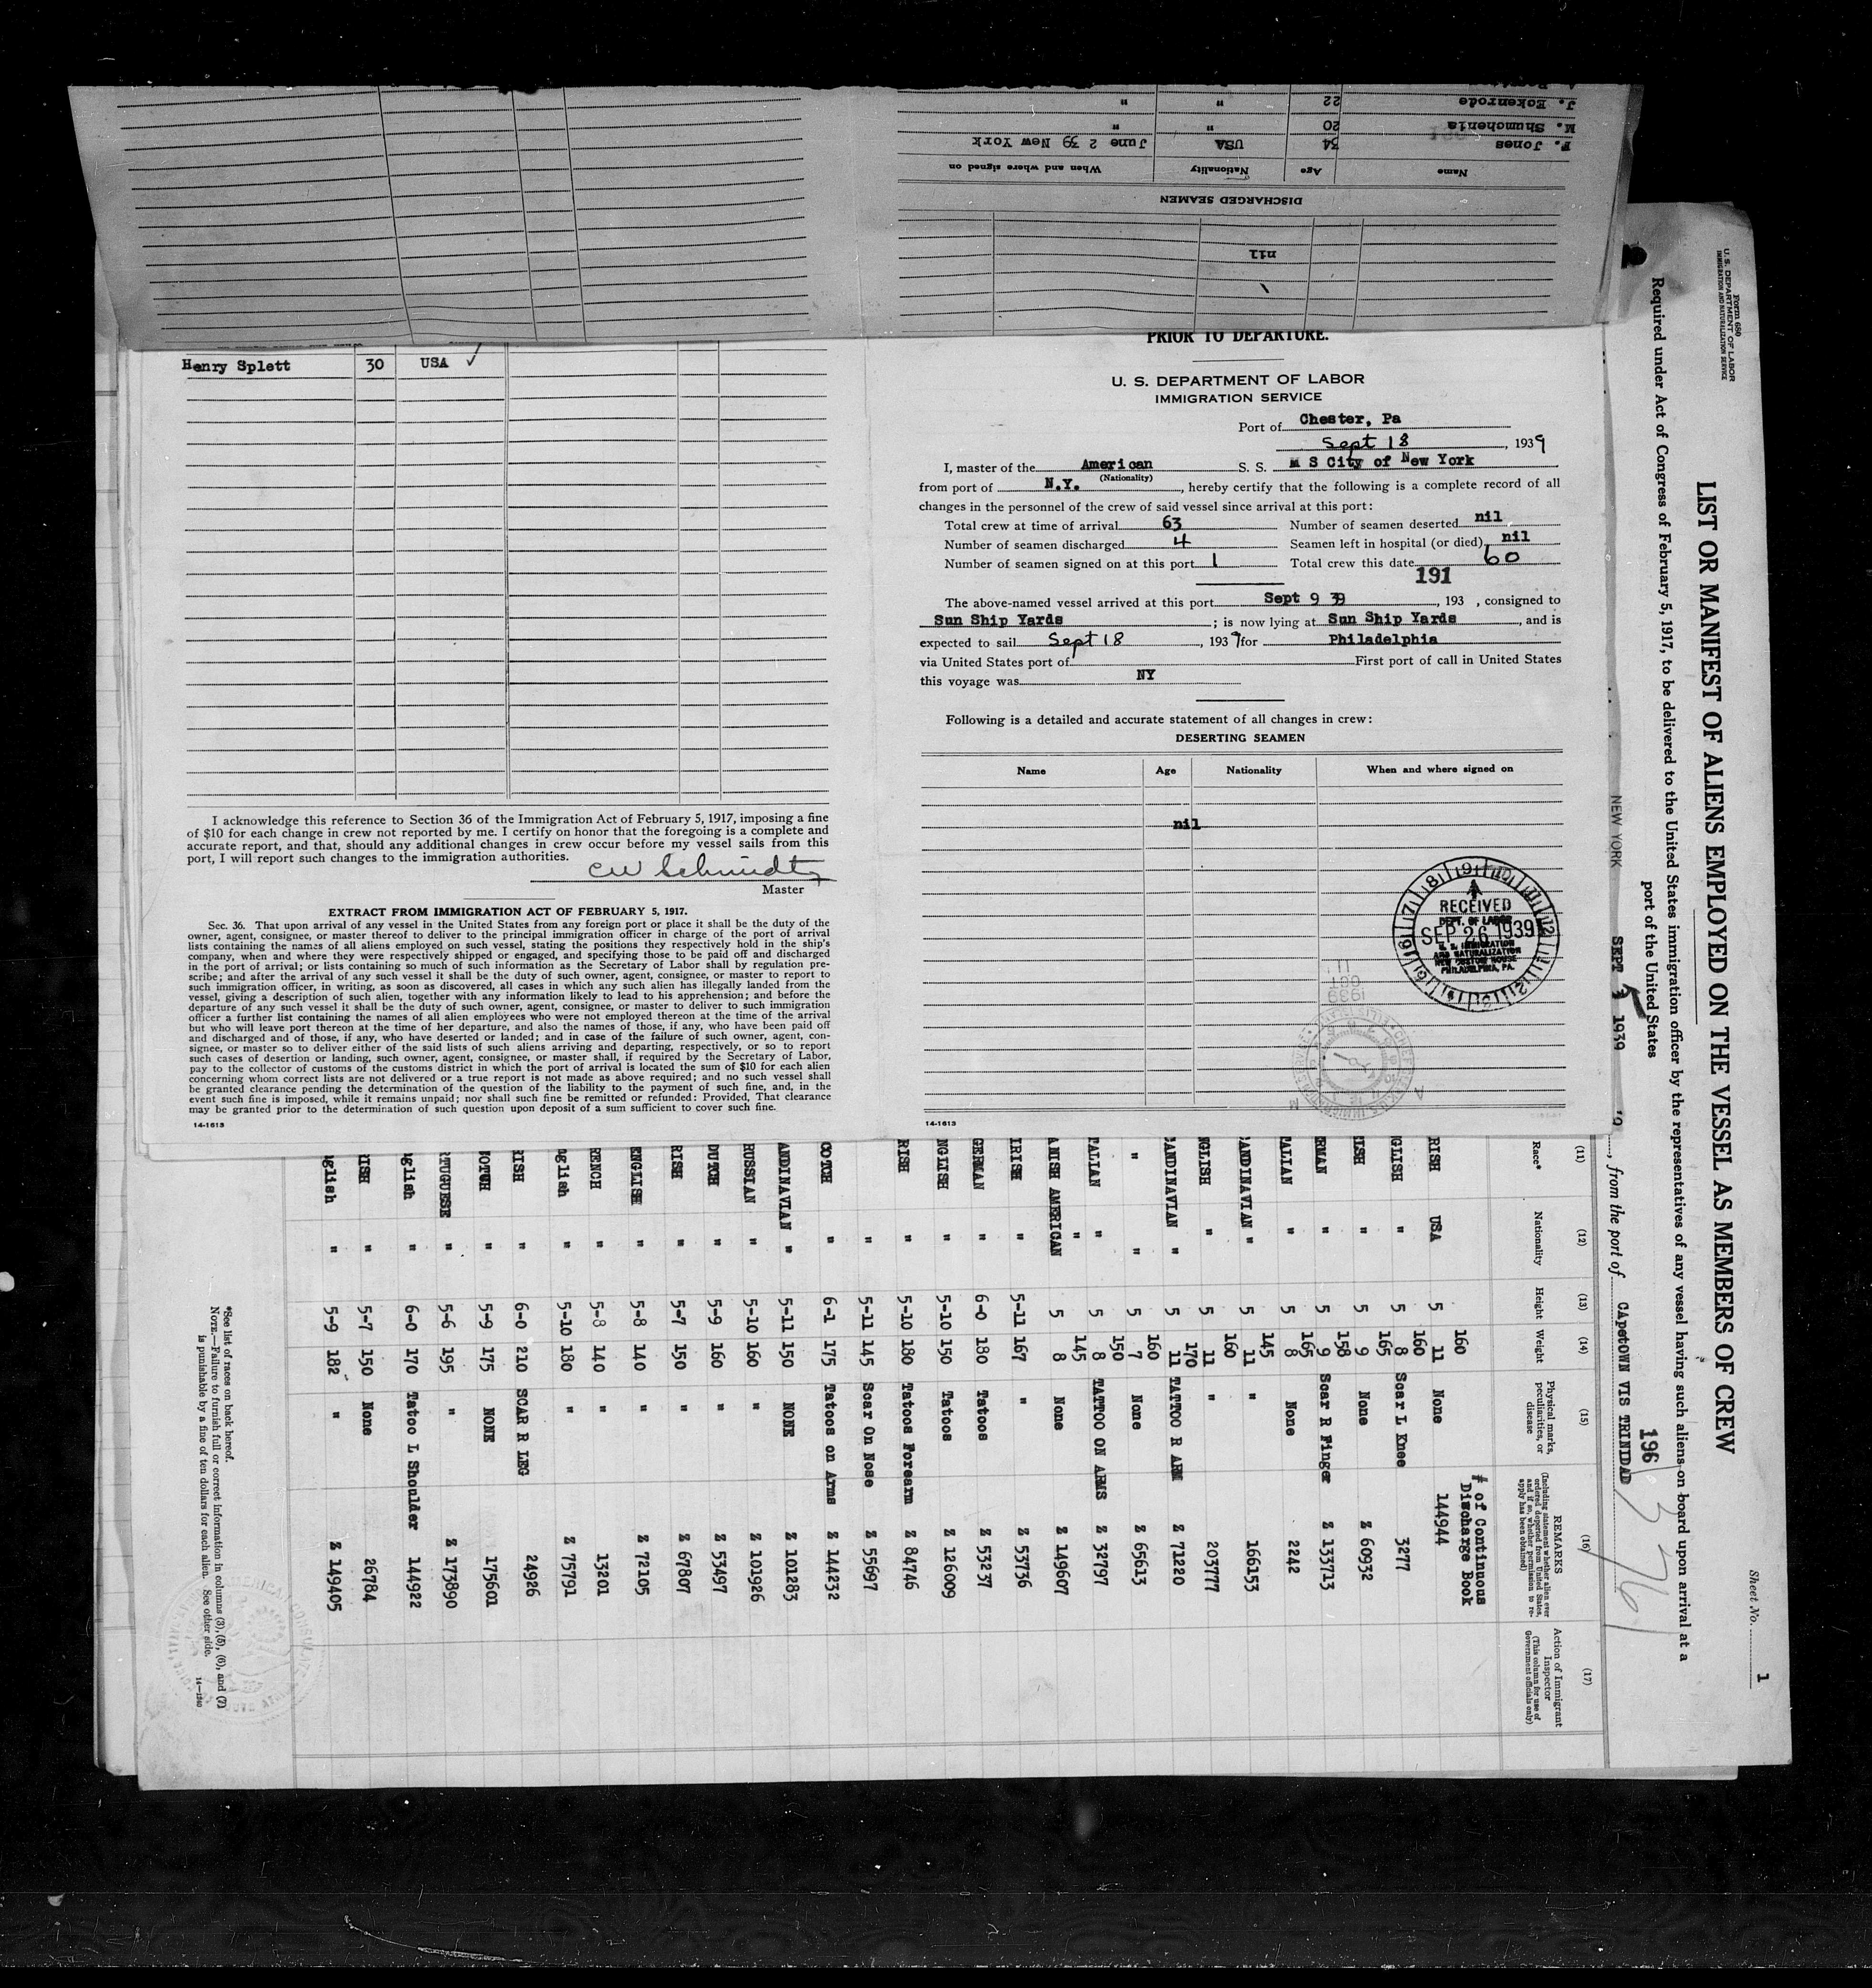 J. Eckenrode 22 " "
M. Shumchenia 20 " "
F. Jones 34 USA June 2 39 New York
Name Age Nationality When and where signed on
DISCHARGED SEAMEN
nil
Henry Splett 30 USA ✓
I acknowledge this reference to Section 36 of the Immigration Act of February 5, 1917, imposing a fine
of $10 for each change in crew not reported by me. I certify on honor that the foregoing is a complete and
accurate report, and that, should any additional changes in crew occur before my vessel sails from this
port, I will report such changes to the immigration authorities.
CW Schmidt
Master
EXTRACT FROM IMMIGRATION ACT OF FEBRUARY 5, 1917.
Sec. 36. That upon arrival of any vessel in the United States from any foreign port or place it shall be the duty of the
owner, agent, consignee, or master thereof to deliver to the principal immigration officer in charge of the port of arrival
lists containing the names of all aliens employed on such vessel, stating the positions they respectively hold in the ship's
company, when and where they were respectively shipped or engaged, and specifying those to be paid off and discharged
in the port of arrival; or lists containing so much of such information as the Secretary of Labor shall by regulation pre-
scribe; and after the arrival of any such vessel it shall be the duty of such owner, agent, consignee, or master to report to
such immigration officer, in writing, as soon as discovered, all cases in which any such alien has illegally landed from the
vessel, giving a description of such alien, together with any information likely to lead to his apprehension; and before the
departure of any such vessel it shall be the duty of such owner, agent, consignee, or master to deliver to such immigration
officer a further list containing the names of all alien employees who were not employed thereon at the time of the arrival
but who will leave port thereon at the time of her departure, and also the names of those, if any, who have been paid off
and discharged and of those, if any, who have deserted or landed; and in case of the failure of such owner, agent, con-
signee, or master so to deliver either of the said lists of such aliens arriving and departing, respectively, or so to report
such cases of desertion or landing, such owner, agent, consignee, or master shall, if required by the Secretary of Labor,
pay to the collector of customs of the customs district in which the port of arrival is located the sum of $10 for each alien
concerning whom correct lists are not delivered or a true report is not made as above required; and no such vessel shall
be granted clearance pending the determination of the question of the liability to the payment of such fine, and, in the
event such fine is imposed, while it remains unpaid; nor shall such fine be remitted or refunded: Provided, That clearance
may be granted prior to the determination of such question upon deposit of a sum sufficient to cover such fine.
14-1613
PRIOR TO DEPARTURE.
U. S. DEPARTMENT OF LABOR
IMMIGRATION SERVICE
Port of Chester, Pa
Sept 18, 1939
I, master of the American S. S. M S City of New York
(Nationality)
from port of N.Y., hereby certify that the following is a complete record of all
changes in the personnel of the crew of said vessel since arrival at this port:
Total crew at time of arrival 63 Number of seamen deserted nil
Number of seamen discharged 4 Seamen left in hospital (or died) nil
Number of seamen signed on at this port 1 Total crew this date 60
191
The above-named vessel arrived at this port Sept 9 39, 193 , consigned to
Sun Ship Yards ; is now lying at Sun Ship Yards, and is
expected to sail Sept 18, 1939 for Philadelphia
via United States port of First port of call in United States
this voyage was NY
Following is a detailed and accurate statement of all changes in crew:
DESERTING SEAMEN
Name Age Nationality When and where signed on
nil
RECEIVED
DEPT. OF LABOR
SEP 26 1939
U. S. IMMIGRATION
AND NATURALIZATION
NEW CUSTOM HOUSE
PHILADELPHIA, PA.
14-1613
Form 680
U. S. DEPARTMENT OF LABOR
IMMIGRATION AND NATURALIZATION SERVICE
Sheet No. 1
LIST OR MANIFEST OF ALIENS EMPLOYED ON THE VESSEL AS MEMBERS OF CREW
Required under Act of Congress of February 5, 1917, to be delivered to the United States immigration officer by the representatives of any vessel having such aliens on board upon arrival at a
port of the United States
196
3761
NEW YORK SEPT 1939, from the port of CAPETOWN VIS TRINIDAD
(11) (12) (13) (14) (15) (16) (17)
Race* Nationality Height Weight Physical marks, peculiarities, or disease
REMARKS
(Including statement whether alien ever ordered deported from United States, and if so, whether permission to reapply has been obtained)
Action of Immigrant Inspector
(This column for use of Government officials only)
# of Continuous
Discharge Book
RISH USA 5 11 160 None 144944
GLISH " 5 8 160 Scar L Knee 3277
LISH " 5 9 165 None Z 60932
RMAN " 5 9 158 Scar R Finger Z 133713
TALIAN " 5 8 165 None 2242
ANDINAVIAN " 5 11 145 " 166153
GLISH " 5 11 160 " 203777
CANDINAVIAN " 5 11 170 TATTOO R ARM Z 71220
" " 5 7 160 None Z 65613
TALIAN " 5 8 150 TATTOO ON ARMS Z 32797
ANISH AMERICAN " 5 8 145 None Z 149607
IRISH " 5-11 167 " Z 53736
GERMAN " 6-0 180 Tatoos Z 53237
NGLISH " 5-10 150 Tatoos Z 126009
RISH " 5-10 180 Tatoos Forearm Z 84746
" 5-11 145 Scar On Nose Z 55697
COTCH " 6-1 175 Tatoos on Arms Z 144232
ANDINAVIAN " 5-11 150 NONE Z 101283
RUSSIAN " 5-10 160 " Z 101926
DUTCH " 5-9 160 " Z 53497
RISH " 5-7 150 " Z 67807
ENGLISH " 5-8 140 " Z 72105
RENCH " 5-8 140 " 13201
nglish " 5-10 180 " Z 75791
RISH " 6-0 210 SCAR R LEG 24926
COTCH " 5-9 175 NONE 175601
RTUGUESE " 5-6 195 " Z 173890
nglish " 6-0 170 Tatoo L Shoulder 144922
RISH " 5-7 150 None 26784
nglish " 5-9 182 " Z 149405
*See list of races on back hereof.
NOTE.—Failure to furnish full or correct information in columns (3), (5), (6), and (7)
is punishable by a fine of ten dollars for each alien. See other side. 14-1240